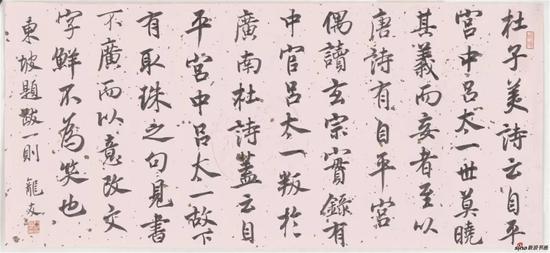 杜子美詩云自平
宮中呂太一世莫曉
其義而妄者至以
唐詩有自平宮
偶讀玄宗實錄有
中官呂太一叛於
廣南杜詩蓋云自
平宮中呂太一故下
有取珠之句見書
不廣而以意改文
字鮮不為笑也
東坡題跋一則 龍友
sina 新浪书画